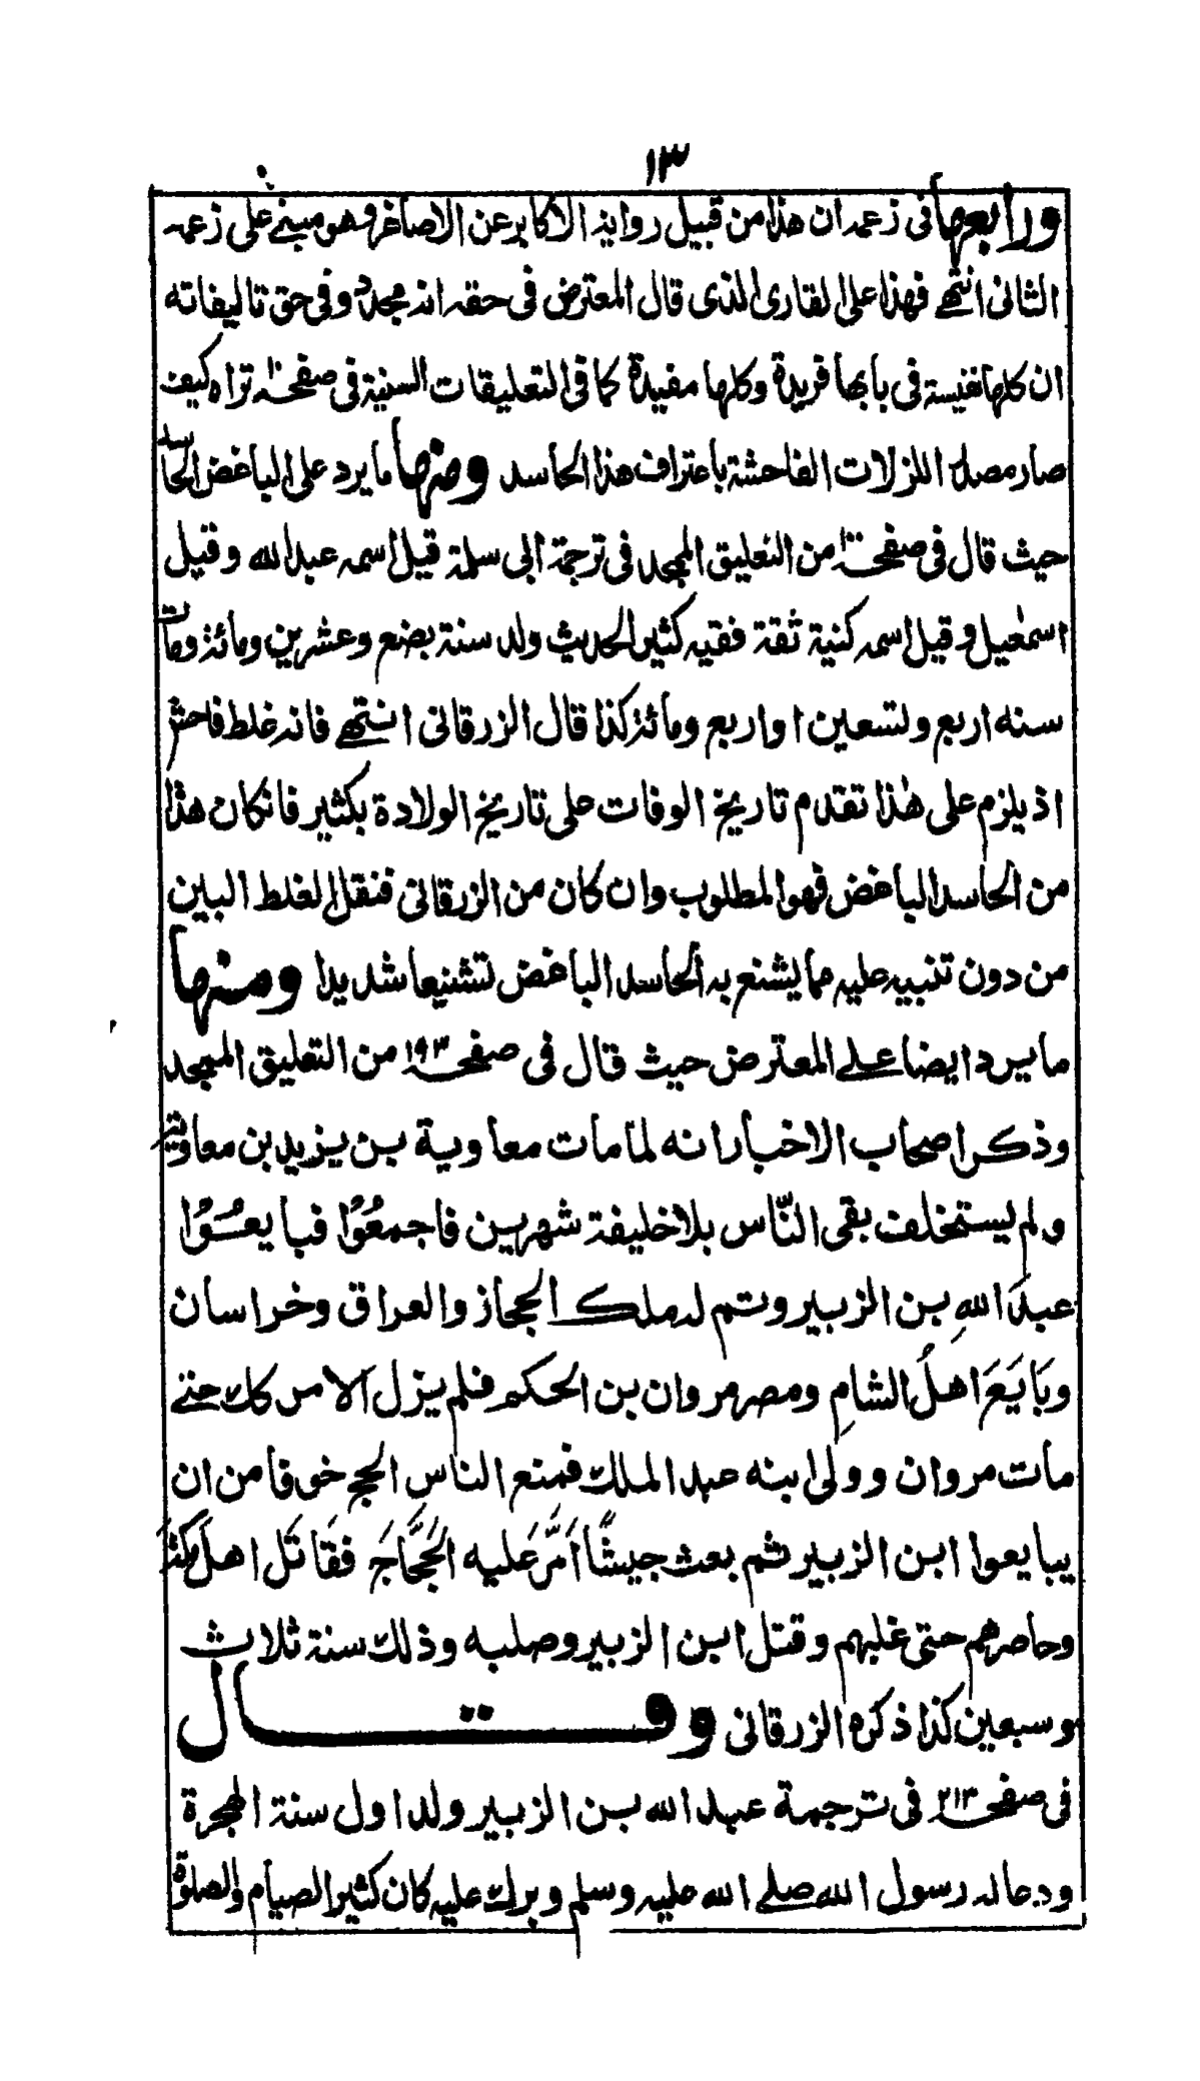 ١٣
ورابعها فى زعمه ان هذا من قبيل رواية الاكابر عن الاصاغر وهو مبنے على زعمه
الثانى انتهے فهذا على القارى الذى قال المعترض فى حقه انه مجدد وفى حق تاليفاته
ان كلها نفيسة فى بابها فريدة وكلها مفيدة كما فى التعليقات السنية فى صفحـ تراه كيف
صار مصدر اللزلات الفاحشة باعتراف هذا الحاسد ومنها ما يرد على الباغض الحاسد
حيث قال فى صفحـ من التعليق الممجد فى ترجمة ابى سلمة قيل اسمه عبد الله وقيل
اسمٰعيل وقيل اسمه كنية ثقة فقيه كثير الحديث ولد سنة بضع وعشرين ومائة ومات
سنه اربع وتسعين او اربع ومائة كذا قال الزرقانى انتهے فانه غلط فاحش
اذ يلزم على هٰذا تقدم تاريخ الوفات على تاريخ الولادة بكثير فانكان هذا
من الحاسد الباغض فهو المطلوب وان كان من الزرقانى فنقل الغلط البين
من دون تنبيه عليه مما يشنع به الحاسد الباغض تشنيعا شديدا ومنها
ما يرد ايضا علے المعترض حيث قال فى صفحـ١٩٣ من التعليق الممجد
وذكر اصحاب الاخبار انه لما مات معاوية بن يزيد بن معاوية
ولم يستخلف بقى النّاس بلا خليفة شهرين فاجمعُوْا فبايعُوْا
عبدَ اللهِ بن الزبير وتم له ملك الحجاز والعراق وخراسان
وبَايَعَ اهلُ الشامِ ومصر مروان بن الحكم فلم يزل الامر كك حتے
مات مروان وولى ابنه عبد الملك فمنع الناس الحج خوفا من ان
يبايعوا ابن الزبير ثم بعث جيشًا اَمَّرَ عليه الحَجَّاجَ فقَاتَل اهلَ مكة
وحاصرهم حتى غلبهم وقتل ابن الزبير وصلبه وذلك سنة ثلاث
وسبعين كذا ذكره الزرقانى وقال
فى صفحـ٢١٣ فى ترجمة عبد الله بن الزبير ولد اول سنة الهجرة
ودعا له رسول الله صلے الله عليه وسلم وبرك عليه كان كثير الصيام والصلوة